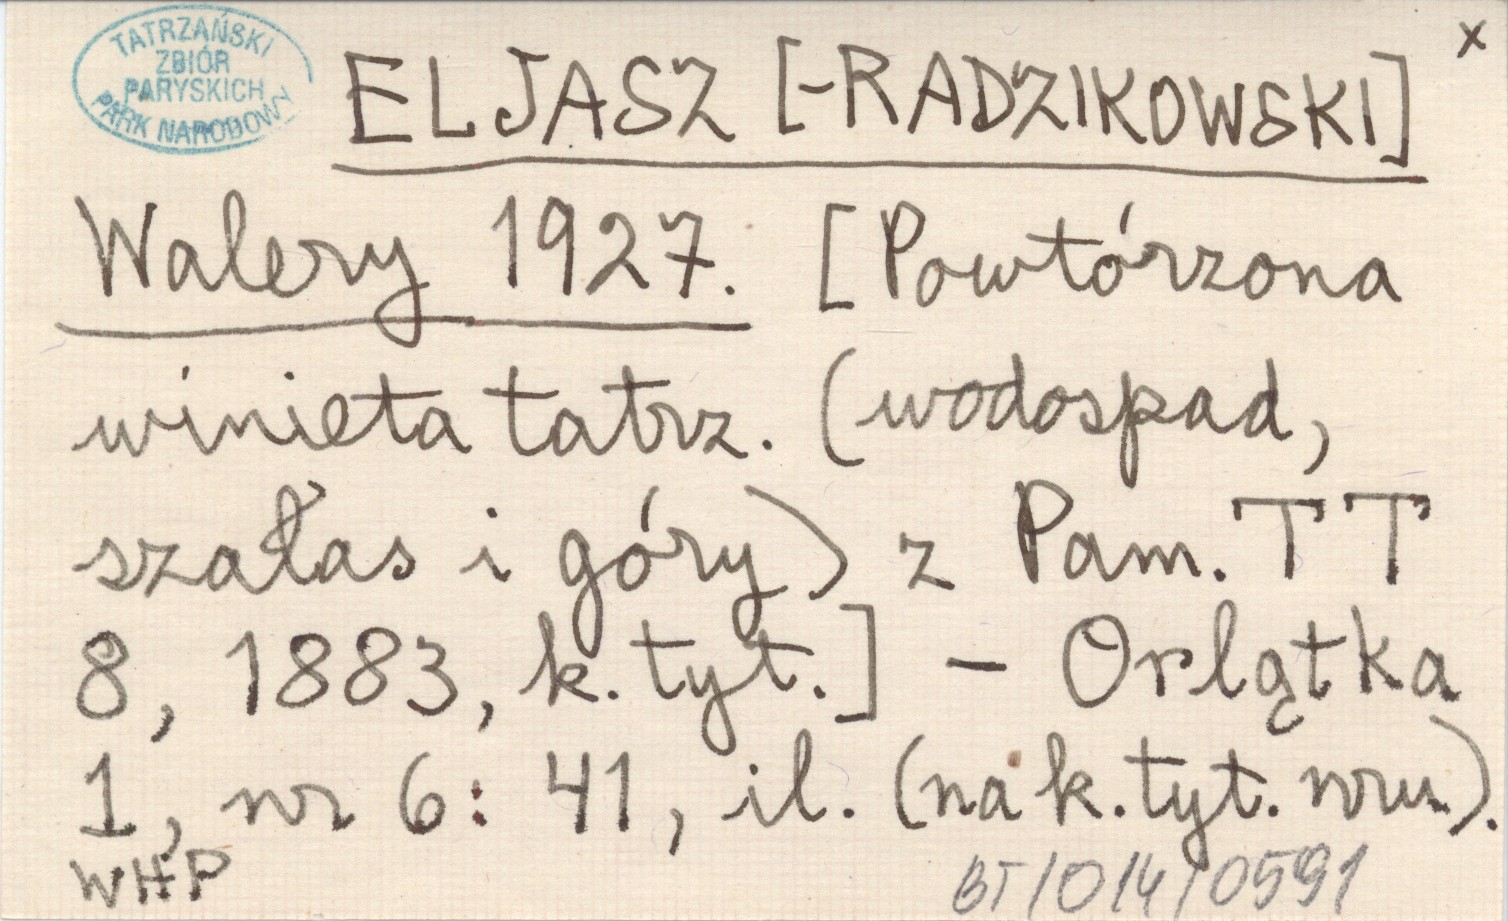 TATRZAŃSKI
ZBIÓR
PARYSKICH
PARK NARODOWY
x
ELJASZ [-RADZIKOWSKI]
Walery 1927. [Powtórzona
winieta tatrz. (wodospad,
szałas i góry) z Pam. TT
8, 1883, k. tyt.] – Orlątka
1, nr 6: 41, il. (na k. tyt. nru).
WHP
BT/014/0591